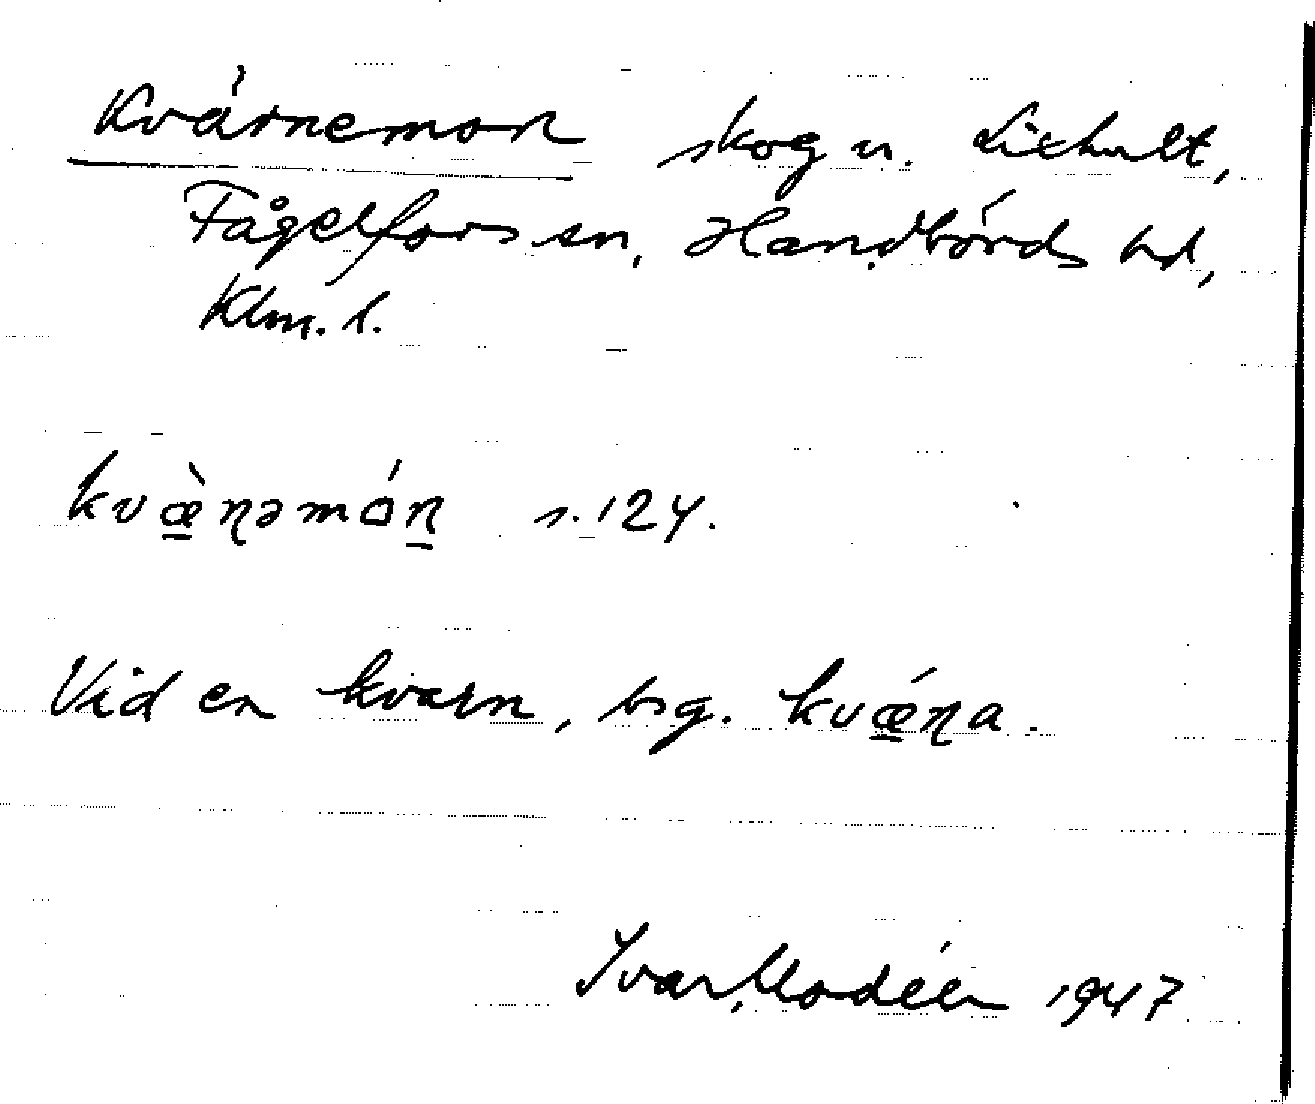 Kvarnemon skog u. Liehult,
Fågelfors sn, Handbörds hd,
Klm. l.
kvæ̀ɳəmóɳ s. 124.
Vid en kvarn, bg. kvǽɳa.
Ivar Modéer 1947